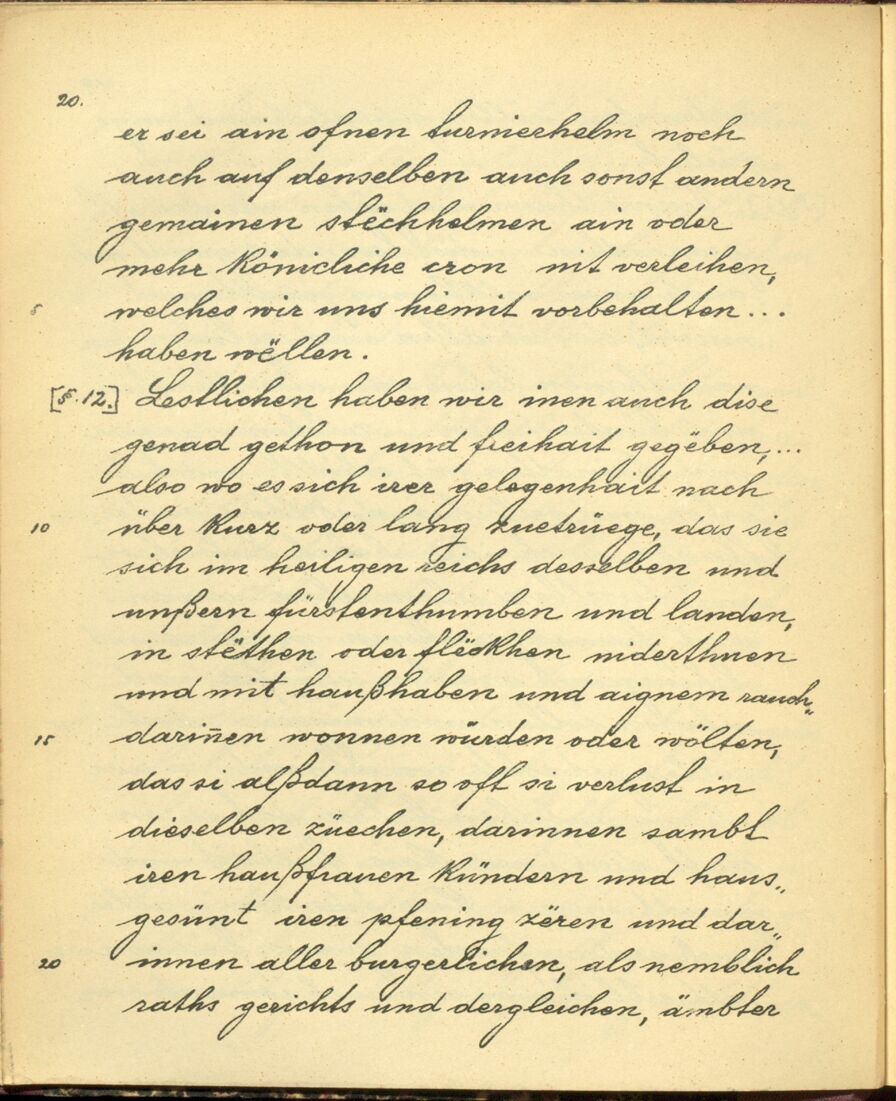 20.
er sei ain ofnen turnierhelm noch
auch auf denselben auch sonst andern
gemainen stëchhelmen ain oder
mehr Königliche cron nit verleihen,
5 welches wir uns hiemit vorbehalten...
haben wëllen.
[§.12.] Lestlichen haben wir inen auch dise
genad gethon und freihait gegëben,...
also wo es sich irer gelegenhait nach
10 über Kurz oder lang zuetrüege, das sie
sich im heiligen reichs desselben und
unßern fürstenthumben und landen,
in stëthen oder flëckhen niderthuen
und mit haußhaben und aignem rauch„
15 darin̄en wonnen würden oder wölten,
das si alßdann so oft si verlust in
dieselben züechen, darinnen sambt
iren haußfrauen Kündern und haus„
gesünt iren pfening zëren und dar„
20 innen aller burgerlichen, als nemblich
raths gerichts und dergleichen, ämbter